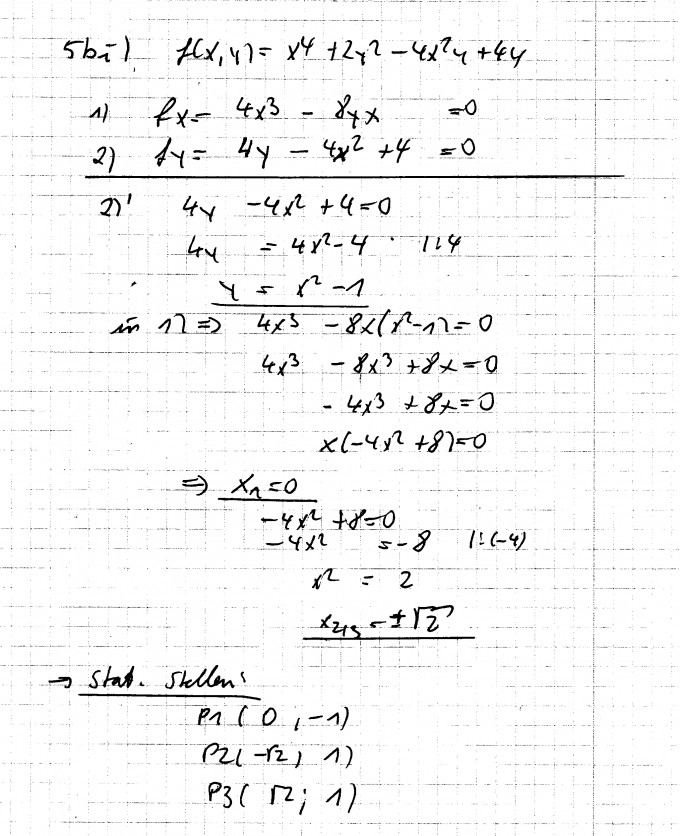 5bi) f(x,y) = x⁴ + 2y² - 4x²y + 4y
1) fx = 4x³ - 8yx = 0
2) fy = 4y - 4x² + 4 = 0
2)' 4y - 4x² + 4 = 0
4y = 4x² - 4 |:4
y = x² - 1
in 1) ⇒ 4x³ - 8x(x² - 1) = 0
4x³ - 8x³ + 8x = 0
- 4x³ + 8x = 0
x(-4x² + 8) = 0
⇒ x₁ = 0
-4x² + 8 = 0
-4x² = -8 |:(-4)
x² = 2
x₂/₃ = ±√2
→ Stat. Stellen:
P1 ( 0 , -1)
P2(-√2; 1)
P3( √2; 1)